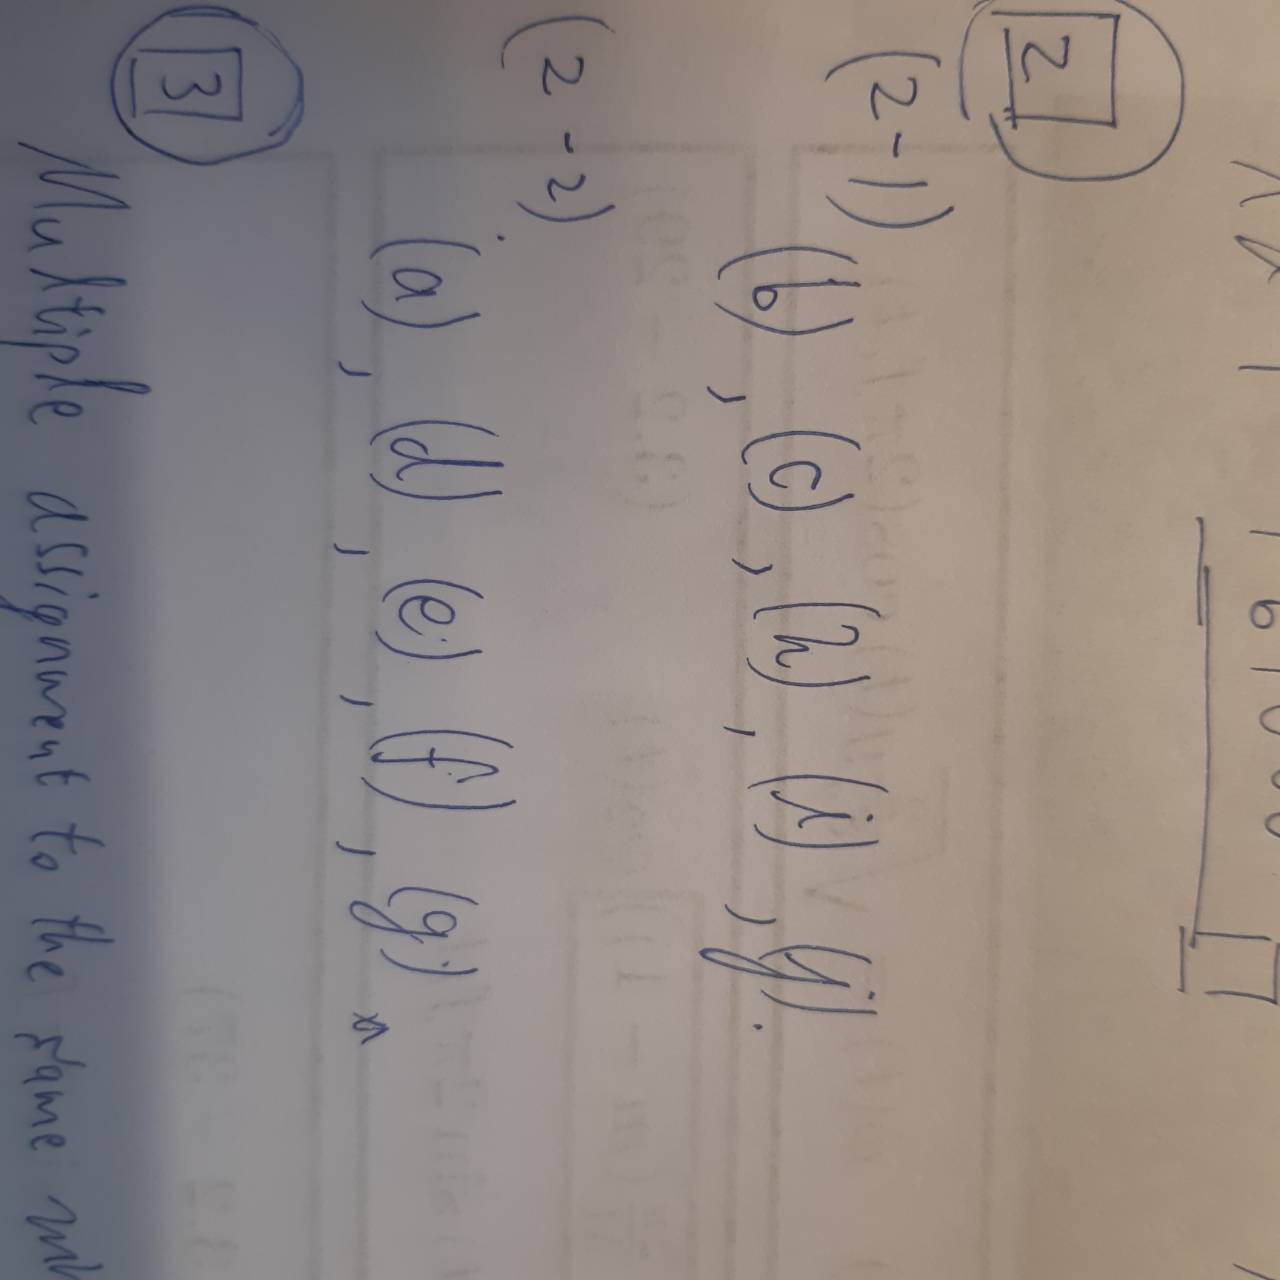 2
(2-1)
(b), (c), (h), (i), (j).
(2-2)
(a), (d), (e), (f), (g)
3
Multiple assignment to the same